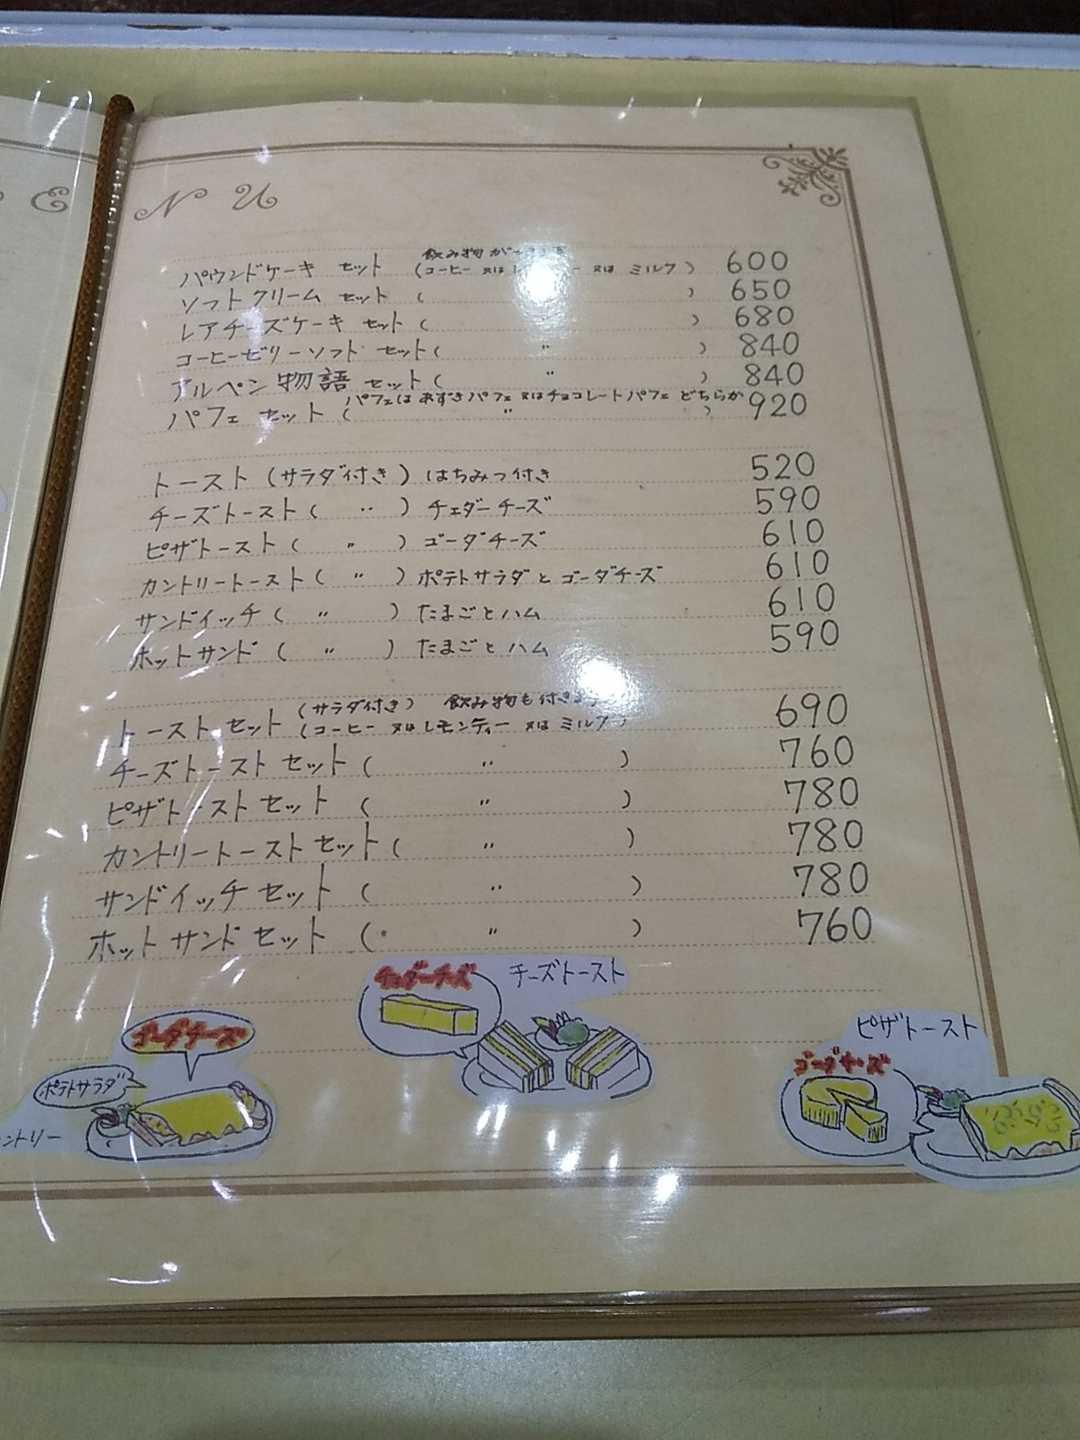 E NU
飲み物が
パウンドケーキ セット (コーヒー 又は レ ー 又は ミルク) 600
ソフトクリーム セット ( ) 650
レアチーズケーキ セット ( ) 680
コーヒーゼリーソフト セット ( 〃 ) 840
アルペン物語 セット ( 〃 ) 840
パフェは あずきパフェ 又はチョコレートパフェ どちらか
パフェ セット ( 〃 ) 920
トースト (サラダ付き) はちみつ付き 520
チーズトースト ( 〃 ) チェダーチーズ 590
ピザトースト ( 〃 ) ゴーダチーズ 610
カントリートースト ( 〃 ) ポテトサラダと ゴーダチーズ 610
サンドイッチ ( 〃 ) たまごとハム 610
ホットサンド ( 〃 ) たまごとハム 590
(サラダ付き) 飲み物も付きます
トーストセット (コーヒー 又はレモンティー 又は ミルク) 690
チーズトースト セット ( 〃 ) 760
ピザトーストセット ( 〃 ) 780
カントリートーストセット ( 〃 ) 780
サンドイッチセット ( 〃 ) 780
ホットサンドセット ( 〃 ) 760
チェダーチーズ
チーズトースト
ゴーダチーズ
ポテトサラダ
ントリー
ピザトースト
ゴーダチーズ